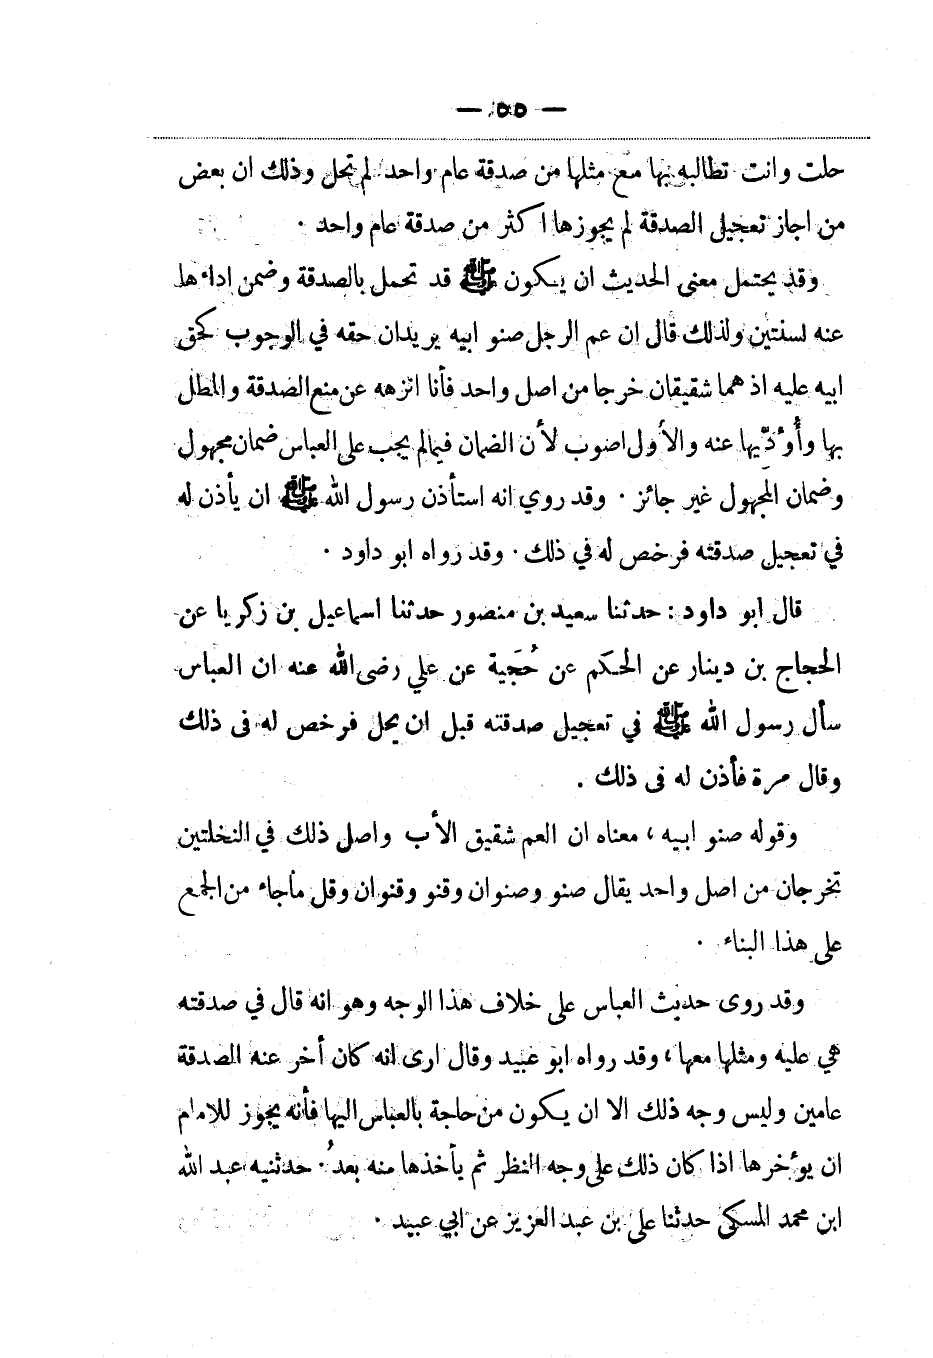 — ٥٥ —
حلت وانت تطالبه بها مع مثلها من صدقة عام واحد لم تحل وذلك ان بعض
من اجاز تعجيل الصدقة لم يجوزها اكثر من صدقة عام واحد .
وقد يحتمل معنى الحديث ان يكون ﷺ قد تحمل بالصدقة وضمن اداءها
عنه لسنتين ولذلك قال ان عم الرجل صنو ابيه يريدان حقه في الوجوب كحق
ابيه عليه اذ هما شقيقان خرجا من اصل واحد فأنا انزهه عن منع الصدقة والمطل
بها وأُؤدّيها عنه والأول اصوب لأن الضمان فيما لم يجب على العباس ضمان مجهول
وضمان المَجهول غير جائز . وقد روي انه استأذن رسول الله ﷺ ان يأذن له
في تعجيل صدقته فرخص له في ذلك . وقد رواه ابو داود .
قال ابو داود : حدثنا سعيد بن منصور حدثنا اسماعيل بن زكريا عن
الحجاج بن دينار عن الحكم عن حُجَية عن علي رضى الله عنه ان العباس
سأل رسول الله ﷺ في تعجيل صدقته قبل ان يحل فرخص له فى ذلك
وقال مرة فأذن له فى ذلك .
وقوله صنو ابيه ، معناه ان العم شقيق الأب واصل ذلك في النخلتين
تخرجان من اصل واحد يقال صنو وصنوان وقنو وقنوان وقل ماجاء من الجمع
على هذا البناء .
وقد روى حديث العباس على خلاف هذا الوجه وهو انه قال في صدقته
هي عليه ومثلها معها ، وقد رواه ابو عبيد وقال ارى انه كان أخر عنه الصدقة
عامين وليس وجه ذلك الا ان يكون من حاجة بالعباس اليها فأنه يجوز للامام
ان يؤخرها اذا كان ذلك على وجه النظر ثم يأخذها منه بعدُ . حدثنيه عبد الله
ابن محمد المسكي حدثنا على بن عبد العزيز عن ابي عبيد .